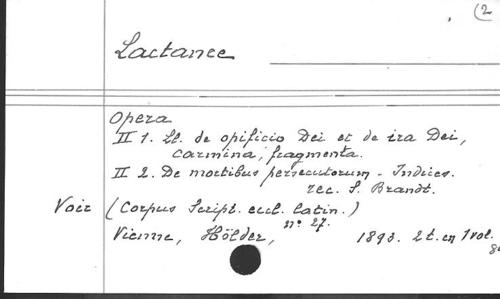 (2
Lactance
Opera
II 1. Ll. de opificio Dei et de ira Dei,
carmina, fragmenta.
II 2. De mortibus persecutorum - Indices.
rec. S. Brandt.
Voir (Corpus Script. eccl. latin.)
n° 27.
Vienne, Hölder, 1893. 2 t. en 1 vol.
8°